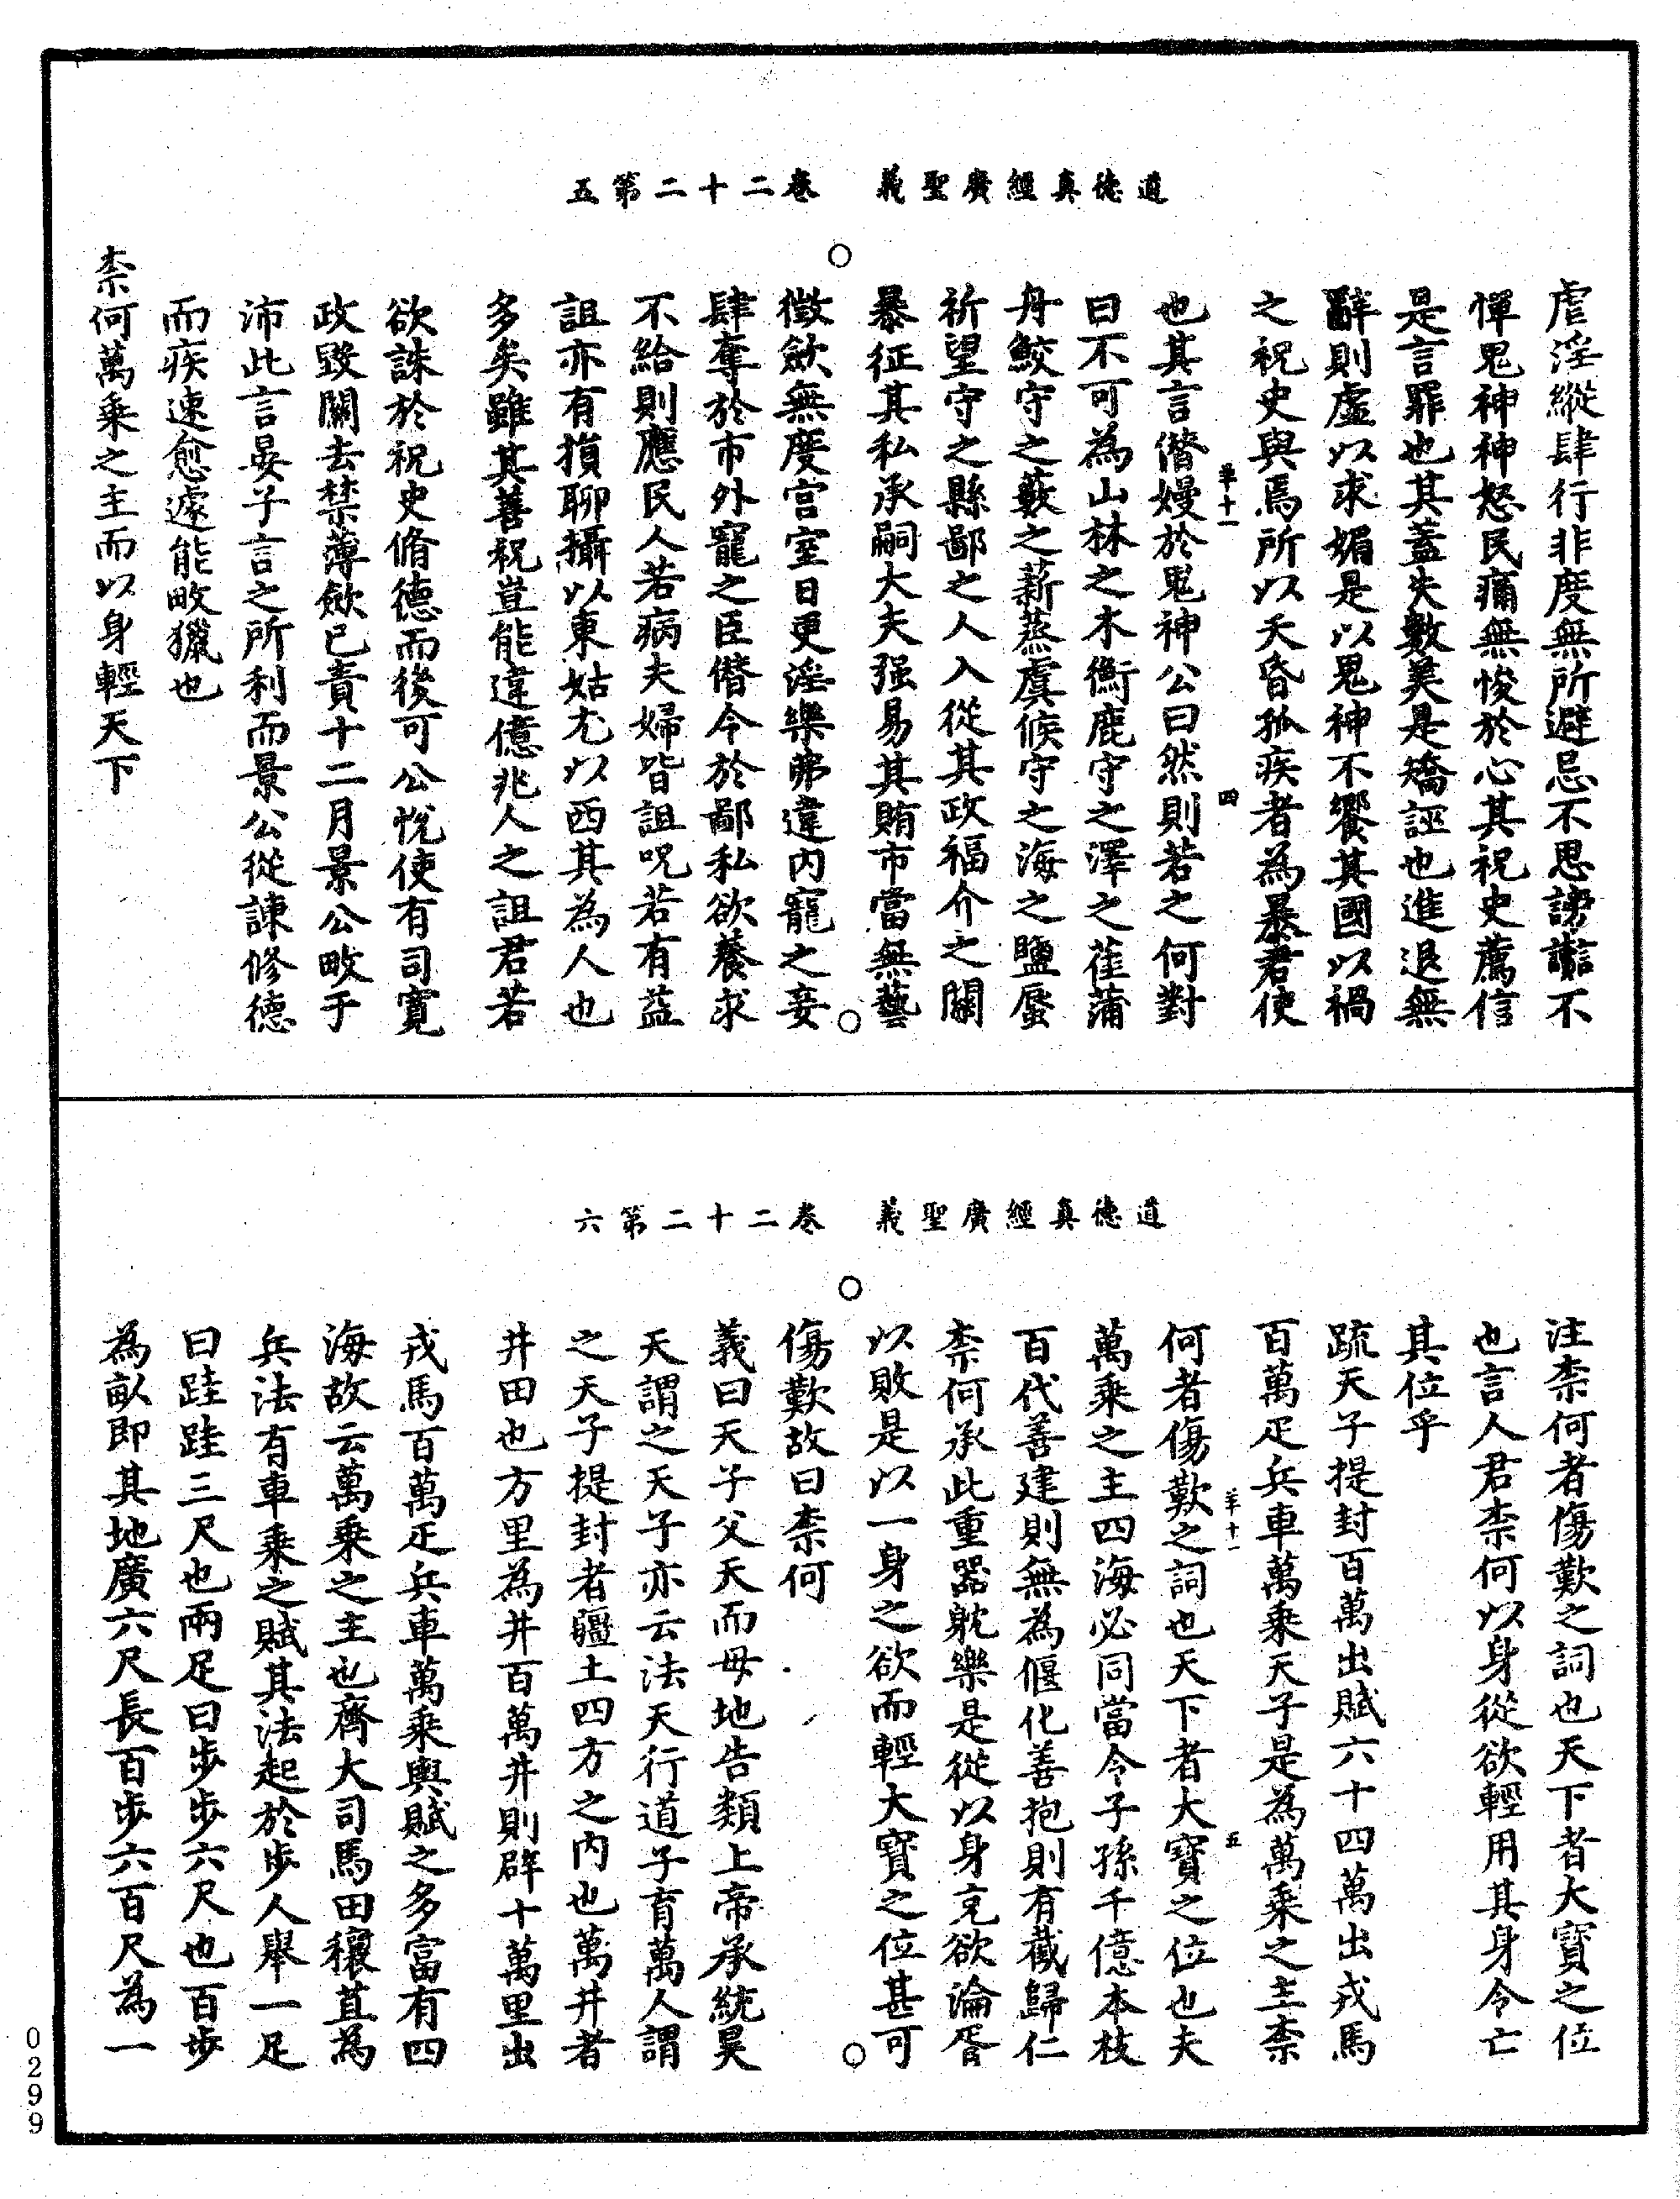 道德真經廣聖義　卷二十二第五
虐淫縱肆行非度無所避忌不思謗讟不
憚鬼神神怒民痛無悛於心其祝史薦信
是言罪也其蓋失數美是矯誣也進退無
辭則虛以求媚是以鬼神不饗其國以禍
之祝史與焉所以夭昏孤疾者為暴君使
羊十一　四
也其言僭嫚於鬼神公曰然則若之何對
曰不可為山林之木衡鹿守之澤之萑蒲
舟鮫守之藪之薪蒸虞候守之海之鹽蜃
祈望守之縣鄙之人入從其政福介之關
暴征其私承嗣大夫强易其賄市當無藝
徵歛無度宫室日更淫樂弗違内寵之妾
肆奪於市外寵之臣僭令於鄙私欲養求
不給則應民人若病夫婦皆詛呪若有益
詛亦有損聊攝以東姑尤以西其為人也
多矣雖其善祝豈能違億兆人之詛君若
欲誅於祝史脩德而後可公悅使有司寬
政毁關去禁薄歛已責十二月景公畋于
沛此言晏子言之所利而景公從諫修德
而疾速愈遽能畋獵也
柰何萬乘之主而以身輕天下
道德真經廣聖義　卷二十二第六
注柰何者傷歎之詞也天下者大寳之位
也言人君柰何以身從欲輕用其身令亡
其位乎
疏天子提封百萬出賦六十四萬出戎馬
百萬疋兵車萬乘天子是為萬乘之主柰
羊十一　五
何者傷歎之詞也天下者大寳之位也夫
萬乘之主四海必同當令子孫千億本枝
百代善建則無為偃化善抱則有截歸仁
柰何承此重器躭樂是從以身克欲淪胥
以敗是以一身之欲而輕大寳之位甚可
傷歎故曰柰何
義曰天子父天而母地告類上帝承統昊
天謂之天子亦云法天行道子育萬人謂
之天子提封者疆土四方之内也萬井者
井田也方里為井百萬井則辟十萬里出
戎馬百萬疋兵車萬乘輿賦之多富有四
海故云萬乘之主也齊大司馬田穰苴為
兵法有車乘之賦其法起於步人舉一足
曰跬跬三尺也兩足曰步步六尺也百步
為畝即其地廣六尺長百步六百尺為一
0299